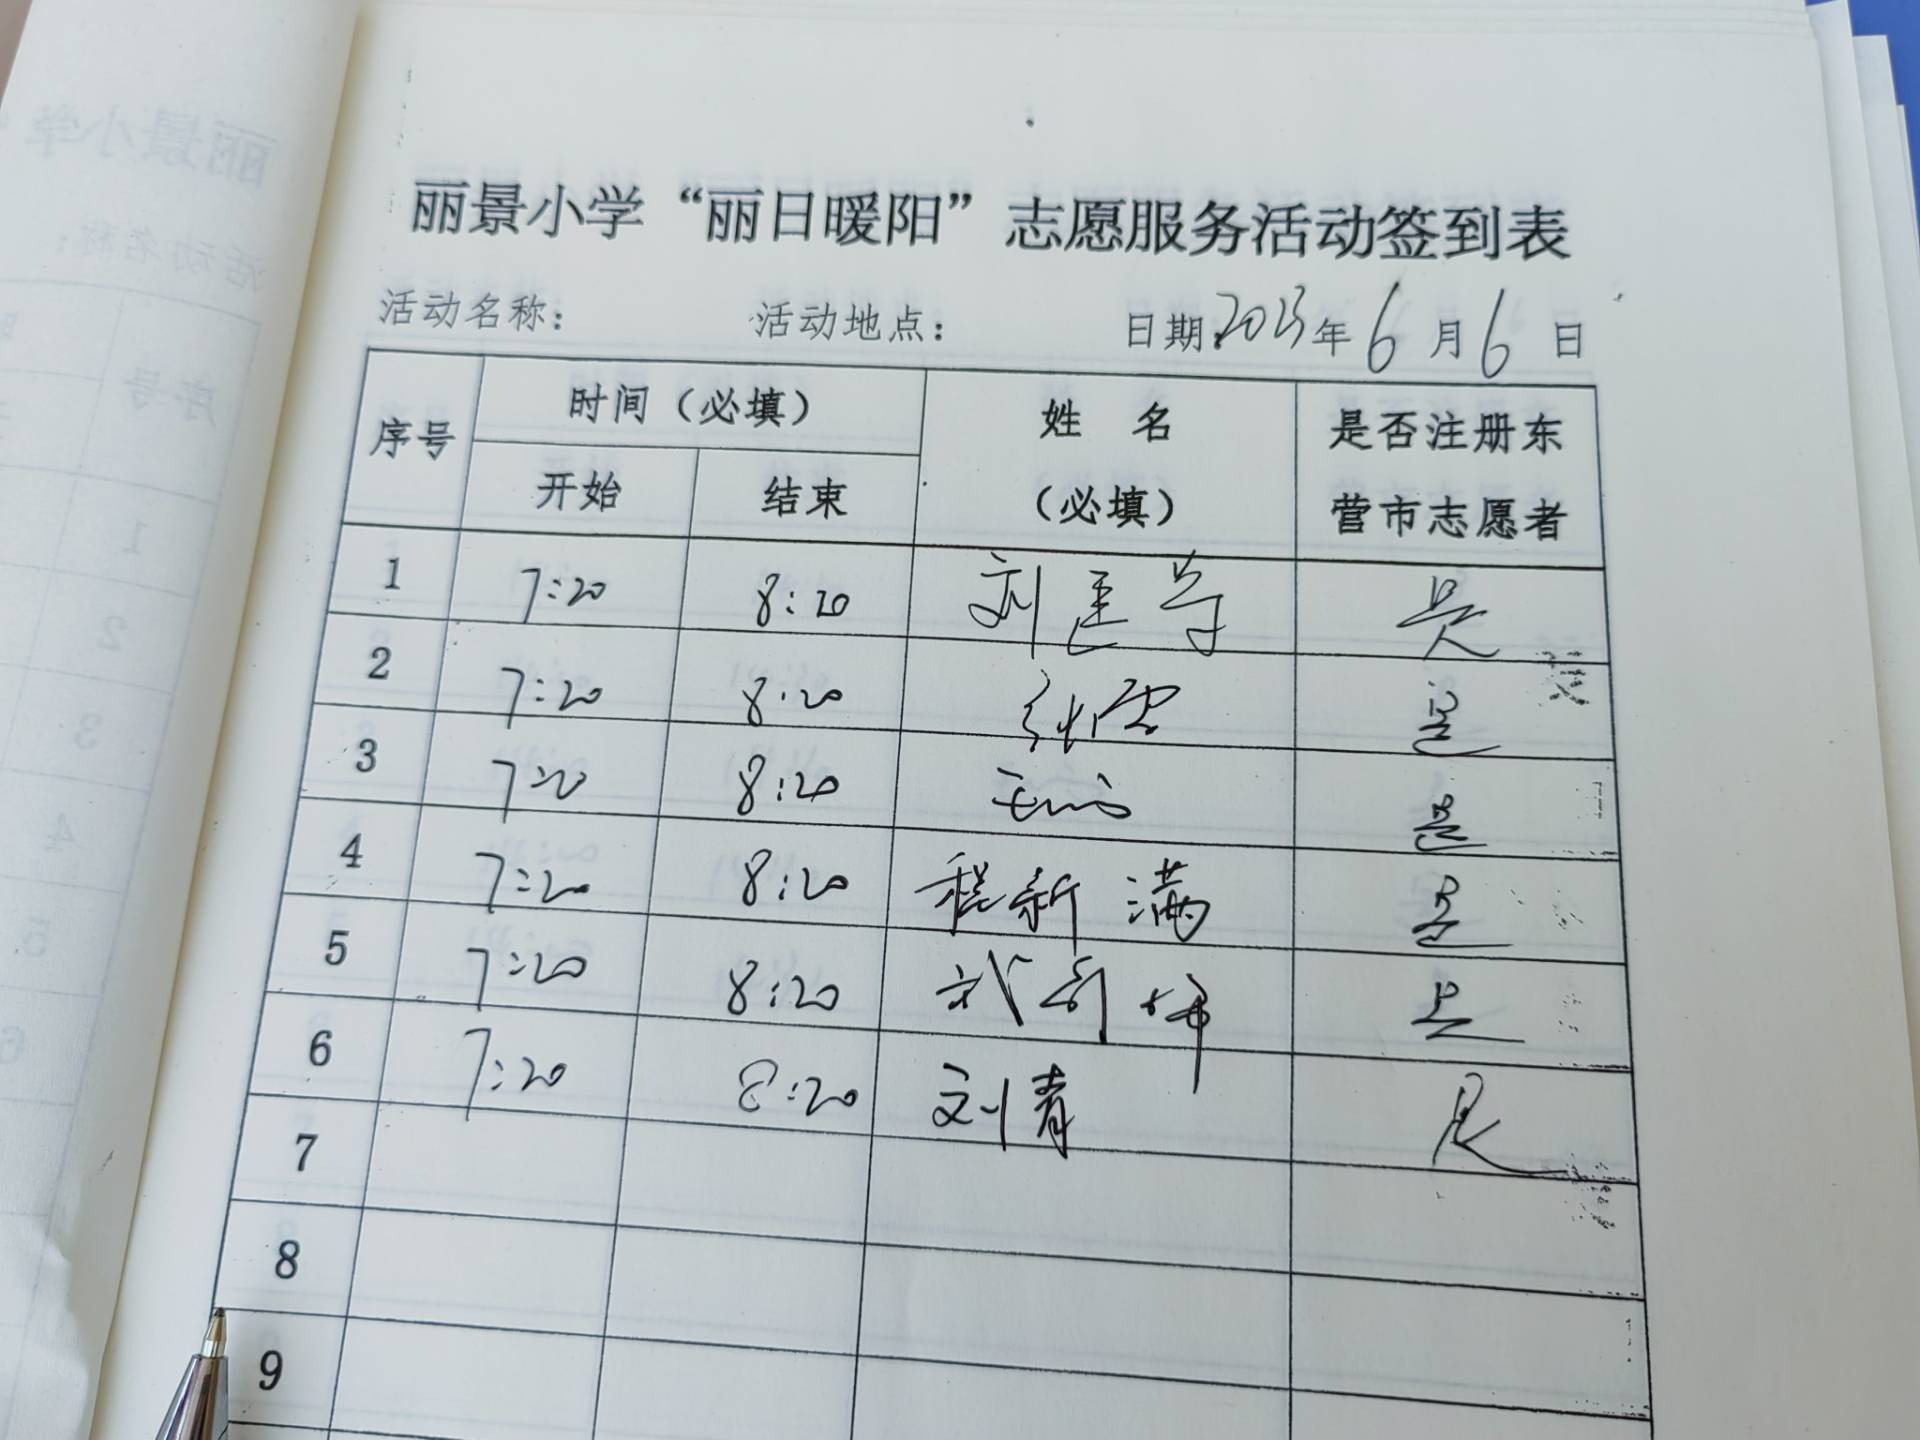 丽景小学“丽日暖阳”志愿服务活动签到表
活动名称： 活动地点： 日期：2023年6月6日
序号 时间（必填） 姓 名（必填） 是否注册东营市志愿者
开始 结束
1 7:20 8:20 刘建芳 是
2 7:20 8:20 张雪 是
3 7:20 8:20 是
4 7:20 8:20 程新满 是
5 7:20 8:20 是
6 7:20 8:20 刘青 是
7
8
9